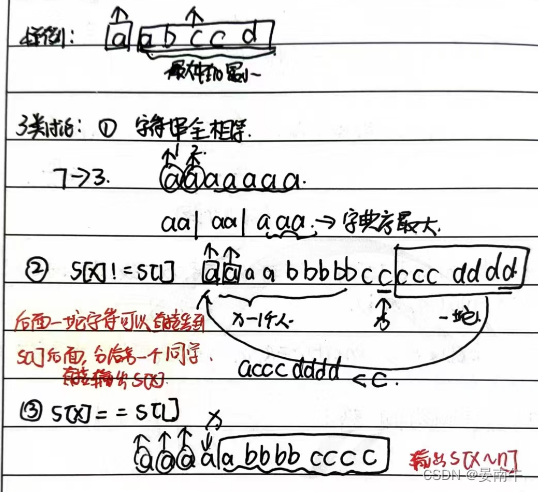 a a b c c d
3类讨论：① 字符串全相等.
1 2.
7→3. a a a a a a a.
aa| aa| a aa. → 字典序最大.
② S[x] != S[1] a a a a b b b b b c c c c c d d d d
x-1个人 x 一坨
后面一坨字符可以直接接到
S[1]后面, 
直接输出S[x].
a c c c d d d d < c.
③ S[x] == S[1] x
a a a a a b b b b c c c c 输出S[x~n]
CSDN @晏南千